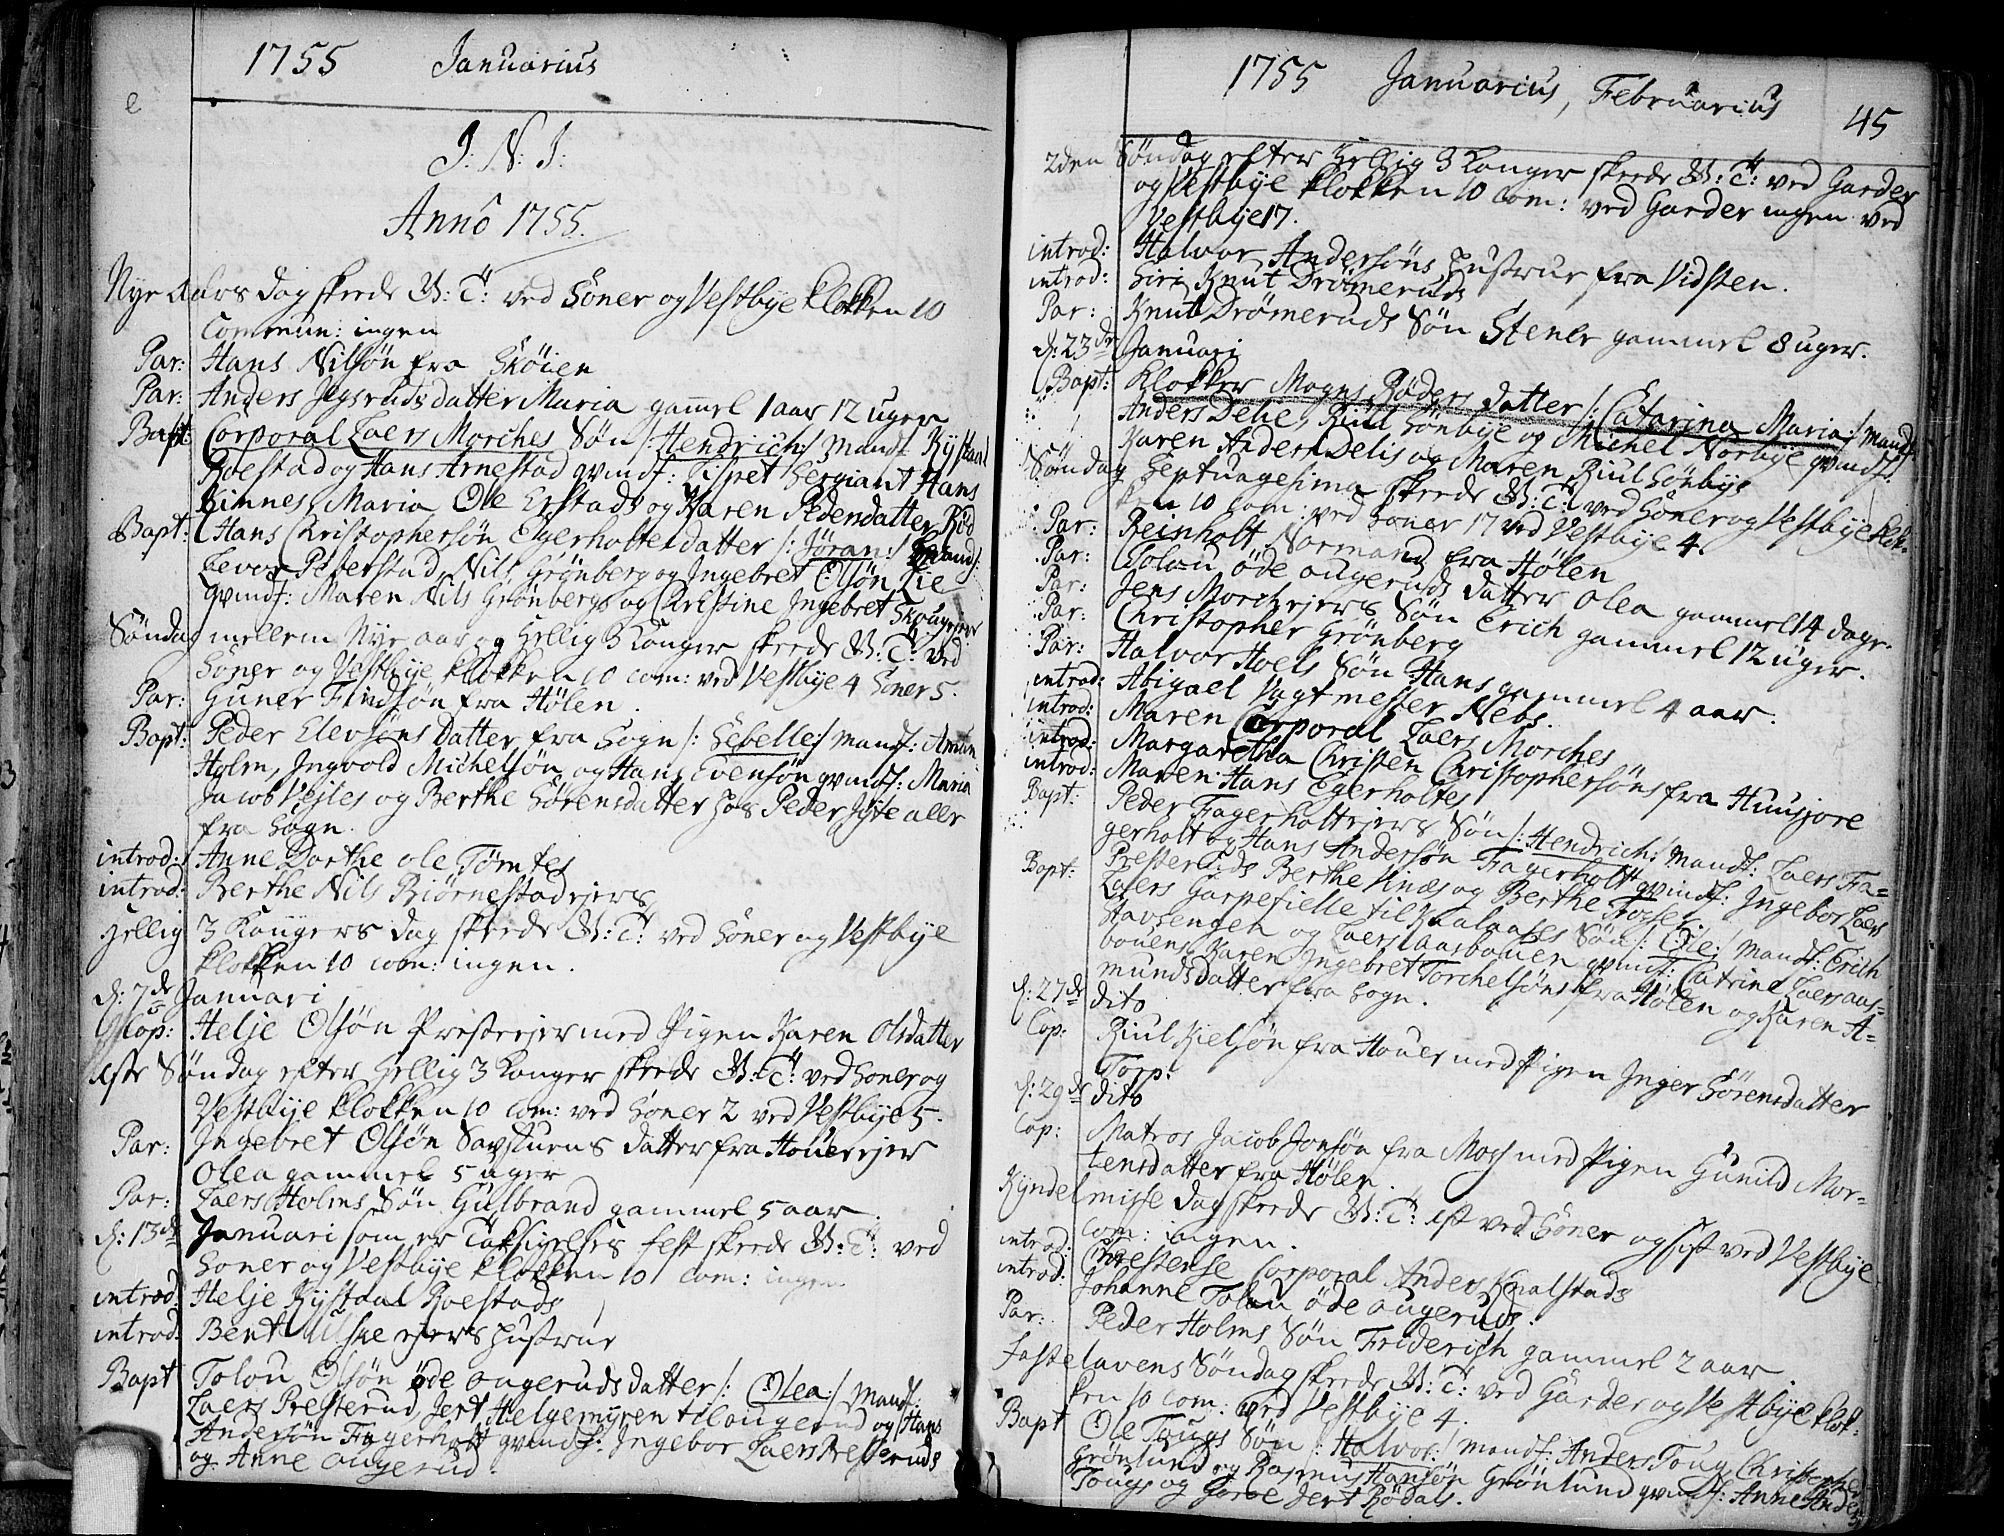 1755 Januarius
J: N: J:
Anno 1755.
Nye Aars dag skeede G: T: ved Soner og Vestbye klokken 10
Commun: ingen
Par: Hans Nilsøn fra Skøien
Par: Anders Jegsruds datter Maria gammel 1 aar 12 uger
Bapt: Corporal Laers Morches Søn /: Hendrich :/ Mandf: Rystaal
Roestad og Hans Arnestad qvindf: Lispet Sergiant Hans
Rimnes, Maria Ole Erstads og Karen Pedersdatter Rød
Bapt: Hans Christophersøn Egerholtes datter /: Jøran :/ Mandf:
Levor Pederstad, Nils Grønberg og Ingebret Olsøn Lie
qvindf: Maren Nils Grønbergs og Christine Ingebret Skougejer
Søndag mellem Nye aar og Hellig 3 Konger skeede G: T: ved
Soner og Vestbye klokken 10 com: ved Vestbye 4 Soner 5.
Par: Guner Findsøn fra Hølen.
Bapt: Peder Elevsøns Datter fra Sogn /: Sebelle :/ Mandf: Amun
Holm, Ingvold Michelsøn og Hans Evensøn qvindf: Maria
Jacob Vejles og Berthe Sørensdatter hos Peder Jyte alle
fra Sogn.
introd: Anne Dorthe Ole Tømtes
introd: Berthe Nils Biørnestadejers
Hellig 3 Kongers dag skeede G: T: ved Soner og Vestbye
klokken 10 com: ingen.
d: 7de Januari
Cop: Helje Olsøn Pristeejer med Pigen Karen Olsdatter
1ste Søndag efter Hellig 3 Konger skeede G: T: ved Soner og
Vestbye klokken 10 com: ved Soner 2 ved Vestbye 5.
Par: Ingebret Olsøn Savstuens datter fra Houerejer
Olea gammel 5 uger
Par: Laers Holms Søn Gulbrand gammel 5 aar.
d: 13de Januari som er Taksigelses fest skeede G: T: ved
Soner og Vestbye klokken 10 com: ingen
introd: Helje Rystaal Roestads
introd: Bent ejers hustrue
Bapt Tolou Olsøn øde ougeruds datter /: Olea :/ Mandf:
Laers Presterud, Jert Helgemyren til ougerud og Hans
Andersøn Fagerholt qvindf: Ingebor Laers Presteruds
og Anne ougerud.
1755 Januarius, Februarius 45
2den Søndag efter Hellig 3 Konger skeede G: T: ved Garder
og Vestbye klokken 10 com: ved Garder ingen ved
Vestbye 17.
introd: Halvor Andersøns hustrue fra Vidsten.
introd: Siri Knut Drømeruds
Par: Knut Drømeruds Søn Stener gammel 8 uger.
d: 23de Januari
Bapt: Klokker Mogns Røders datter /: Catarina Maria :/ mandf:
Anders Delie, Riul Sønbye og Michel Norbye qvindf:
Karen Anders Delis og Maren Riul Sønbye
Søndag Septuagesima skeede G: T: ved Soner og Vestbye klok-
ken 10 com: ved Soner 17 ved Vestbye 4.
Par: Reinholt Normand fra Hølen
Par: Tolou øde ougeruds datter Olea gammel 14 dage.
Par: Jens Morchejers Søn Erich gammel 12 uger.
Par: Christopher Grønberg
Par: Halvor Hoels Søn Hans gammel 4 aar.
introd: Abigael Vagtmester Nebs.
introd: Maren Corporal Laers Morches
introd: Margaretha Christen Christophersøns fra Huusjore
introd: Maren Hans Egerholtes
Bapt: Peder Fagerholtejers Søn /: Hendrich :/ Mandf: Laers Fa=
gerholt og Hans Andersøn Fagerholt qvindf: Ingebor Laers
Presteruds Berthe og Berthe
Bapt: Laers Garpefielle til Kaalaases Søn /: Ole :/ Mandf: Erich
Stavsengen og Laers Aasbouen qvindf: Catrine Laers aas=
bouens Karen Ingebret Torchelsøns fra Hølen og Karen A=
mundsdatter fra Sogn.
d: 27de dito
Cop: Riul Kielsøn fra Houer med Pigen Inger Sørensdatter
Torp.
d: 29de dito
Cop: Matros Jacob Jonsøn fra Moss med Pigen Gunild Mor=
tensdatter fra Hølen.
Kyndelmisse dag skeede G: T: 1st ved Soner og sist ved Vestbye
com: ingen.
introd: Chrestense Corporal Anders Knalstads
introd: Johanne Tolou øde ougeruds.
Par: Peder Holms Søn Friderich gammel 2 aar
Fastelavens Søndag skeede G: T: ved Garder og Vestbye klok-
ken 10 com: ved Vestbye 4.
Bapt Ole Tougs Søn /: Halvor :/ mandf: Anders Toug, Christopher
Grønlund og Rasmus Hansøn Grønlund qvindf: Anne Anders
Tougs og Goroe Jert Rødals.